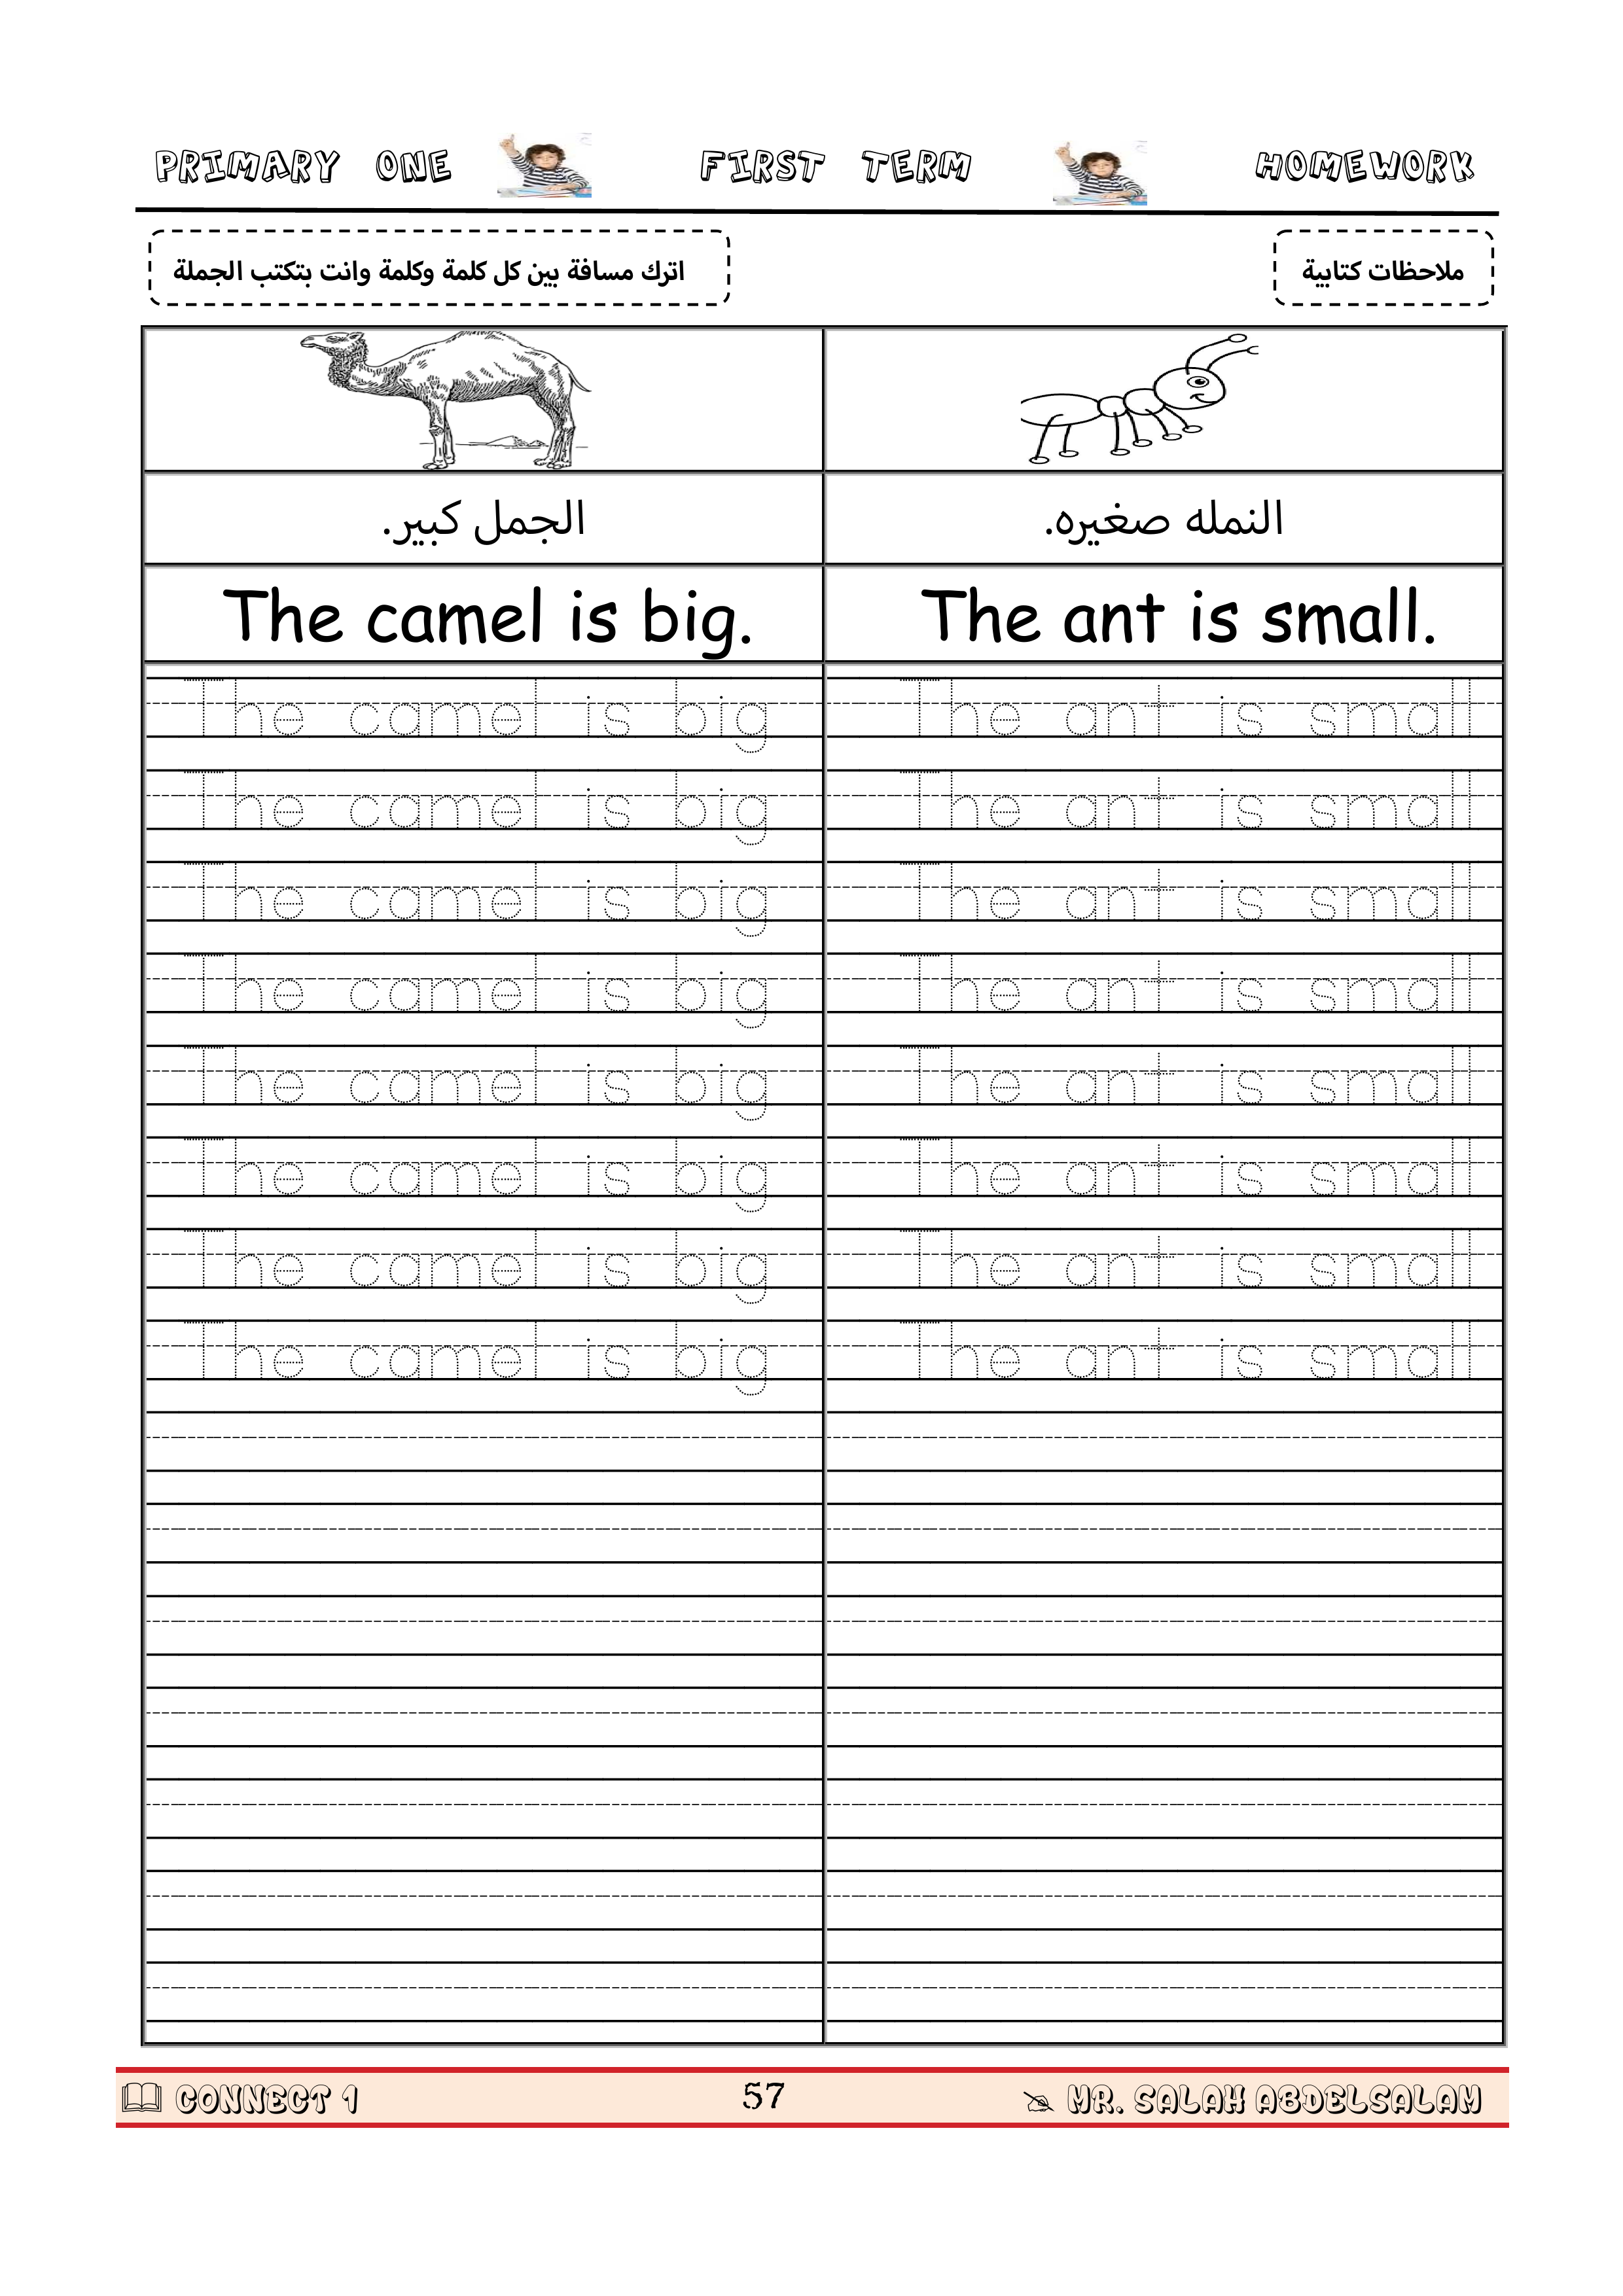 PRIMARY ONE FIRST TERM HOMEWORK
ملاحظات كتابية
اترك مسافة بين كل كلمة وكلمة وانت بتكتب الجملة
الجمل كبير.
النمله صغيره.
The camel is big.
The ant is small.
The camel is big
The ant is small
The camel is big
The ant is small
The camel is big
The ant is small
The camel is big
The ant is small
The camel is big
The ant is small
The camel is big
The ant is small
The camel is big
The ant is small
The camel is big
The ant is small
CONNECT 1 57 MR. SALAH ABDELSALAM